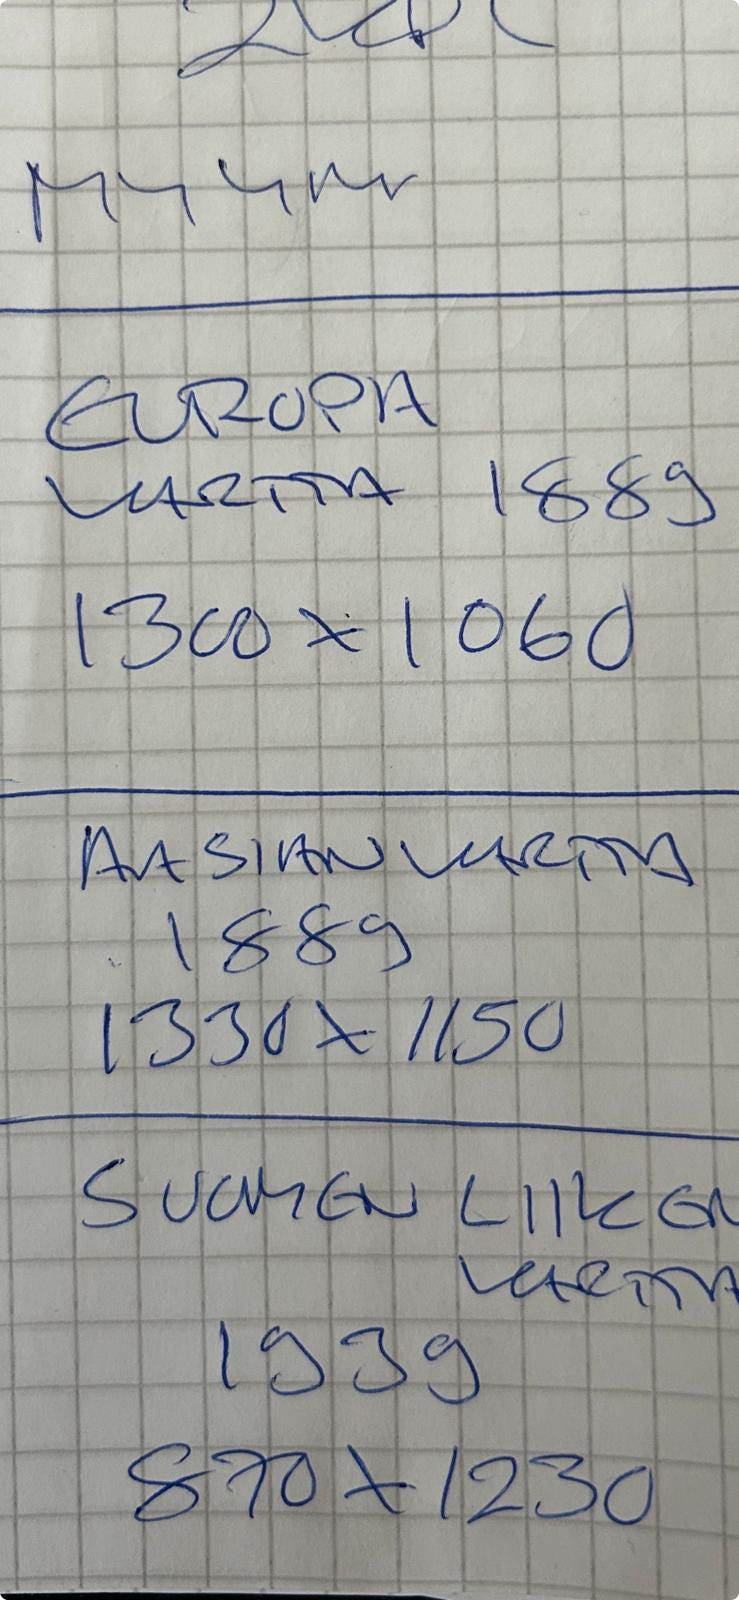 EUROPA
KARTTA 1889
1300 x 1060
AASIAN KARTTA
1889
1330 x 1150
SUOMEN LIIKEN
KARTTA
1939
870 x 1230